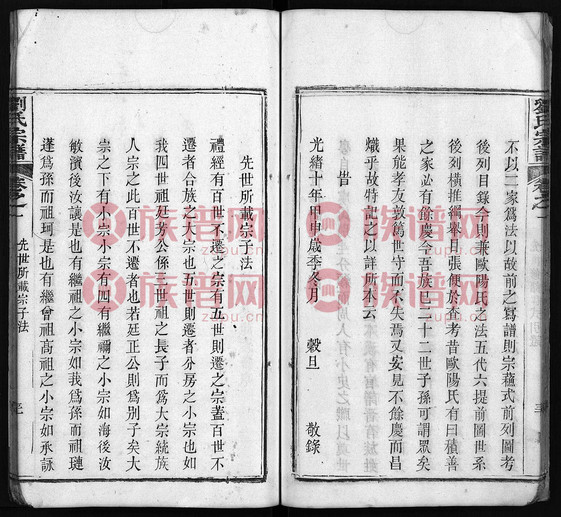 不以二家為法以故前之寫譜則宗蘊式前列圖考
後列目錄今則兼歐陽氏之法五代六提前圖世系
後列橫推綱舉目張便於查考昔歐陽氏有曰積善
之家必有餘慶今吾族已二十二世子孫可謂眾矣
果能孝友敦篤世守而不失焉又安見不餘慶而昌
熾乎故特記之以詳所本云
告
光緒十年甲申歲季冬月 穀旦 敬錄
劉氏宗譜 卷之一 先世所載宗子法
先世所載宗子法
禮經有百世不遷之宗有五世則遷之宗蓋百世不
遷者合族之大宗也五世則遷者分房之小宗也如
我四世祖廷考公係三世祖之長子而為大宗統族
人宗之此百世不遷者也若廷正公則為別子矣大
宗之下有小宗小宗有四有繼禰之小宗如海後汝
敏濱後汝讓是也有繼祖之小宗如我為孫而祖璉
蓬為孫而祖珂是也有繼曾祖高祖之小宗如承詠
族谱网
zupu.cn